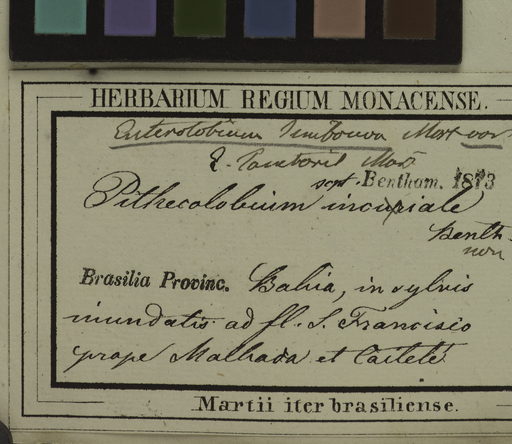 HERBARIUM REGIUM MONACENSE.
Enterolobium Timbouva Mart var
E. Tamboril Mart
scpt. Bentham. 1873
Pithecolobium incuriale
Benth.
non
Brasilia Provinc. Bahia, in sylvis
inundatis ad fl. S. Francisco
prope Malhada et Caiteté
Martii iter brasiliense.